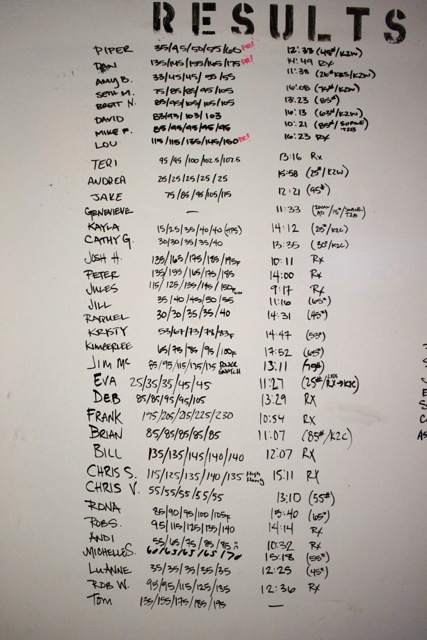 RESULTS
PIPER 35/45/50/55/60 PR! 12:33 (45#/K2W)
DAN 135/145/155/165/175 PR! 14:49 Rx
AMY B. 33/43/45/ 11:38
SETH M. 75/85/85/95/105
BRETT N. 85/95/105/105/105 13:23 (85#)
DAVID 83/93/103/103 16:13 (63#/K2W)
MIKE F. 85/95/95/95/95 10:21
LOU 115/115/135/145/150 PR! 16:23 Rx
TERI 95/95/100/102.5/107.5 13:16 Rx
ANDREA 25/25/25/25/25 15:58 (25#/K2W)
JAKE 75/85/95/105/115 12:21 (95#)
GENEVIEVE — 11:33
KAYLA 15/25/35/40/40 14:12 (25#/K2C)
CATHY G. 30/30/35/35/40 13:35 (30#/K2C)
JOSH H. 135/165/175/185/195F 10:11 Rx
PETER 135/155/165/175/185 14:00 Rx
JULES 115/125/135/145/150 9:17 Rx
JILL 35/40/45/50/55 11:16 (65#)
RAQUEL 30/30/35/35/40 14:31 (45#)
KRISTY 55/67/73/78/83F 14:47 (53#)
KIMBERLEE 65/75/85/95/100F 17:52 (65#)
JIM MC 85/95/115/135/135 POWER SNATCH 13:11 (75#)
EVA 25/35/35/45/45 11:27
DEB 85/85/95/95/105 13:29 Rx
FRANK 175/205/215/225/230 10:54 Rx
BRIAN 85/85/85/85/85 11:07 (85#/K2C)
BILL 135/135/145/140/140 12:07 Rx
CHRIS S. 115/125/135/140/135 High Hang 15:11 Rx
CHRIS V. 55/55/55/55/55 13:10 (55#)
RONA 85/90/95/100/105F 15:40 (65#)
ROB S. 95/115/125/135/140 14:14 Rx
ANDI 55/65/75/85/85 10:32 Rx
MICHELLE S. 60/63/65/65/70 15:18 (55#)
LUANNE 35/35/35/35/35 12:25 (45#)
ROB W. 95/95/115/125/135 12:36 Rx
TOM 135/155/175/185/195 —